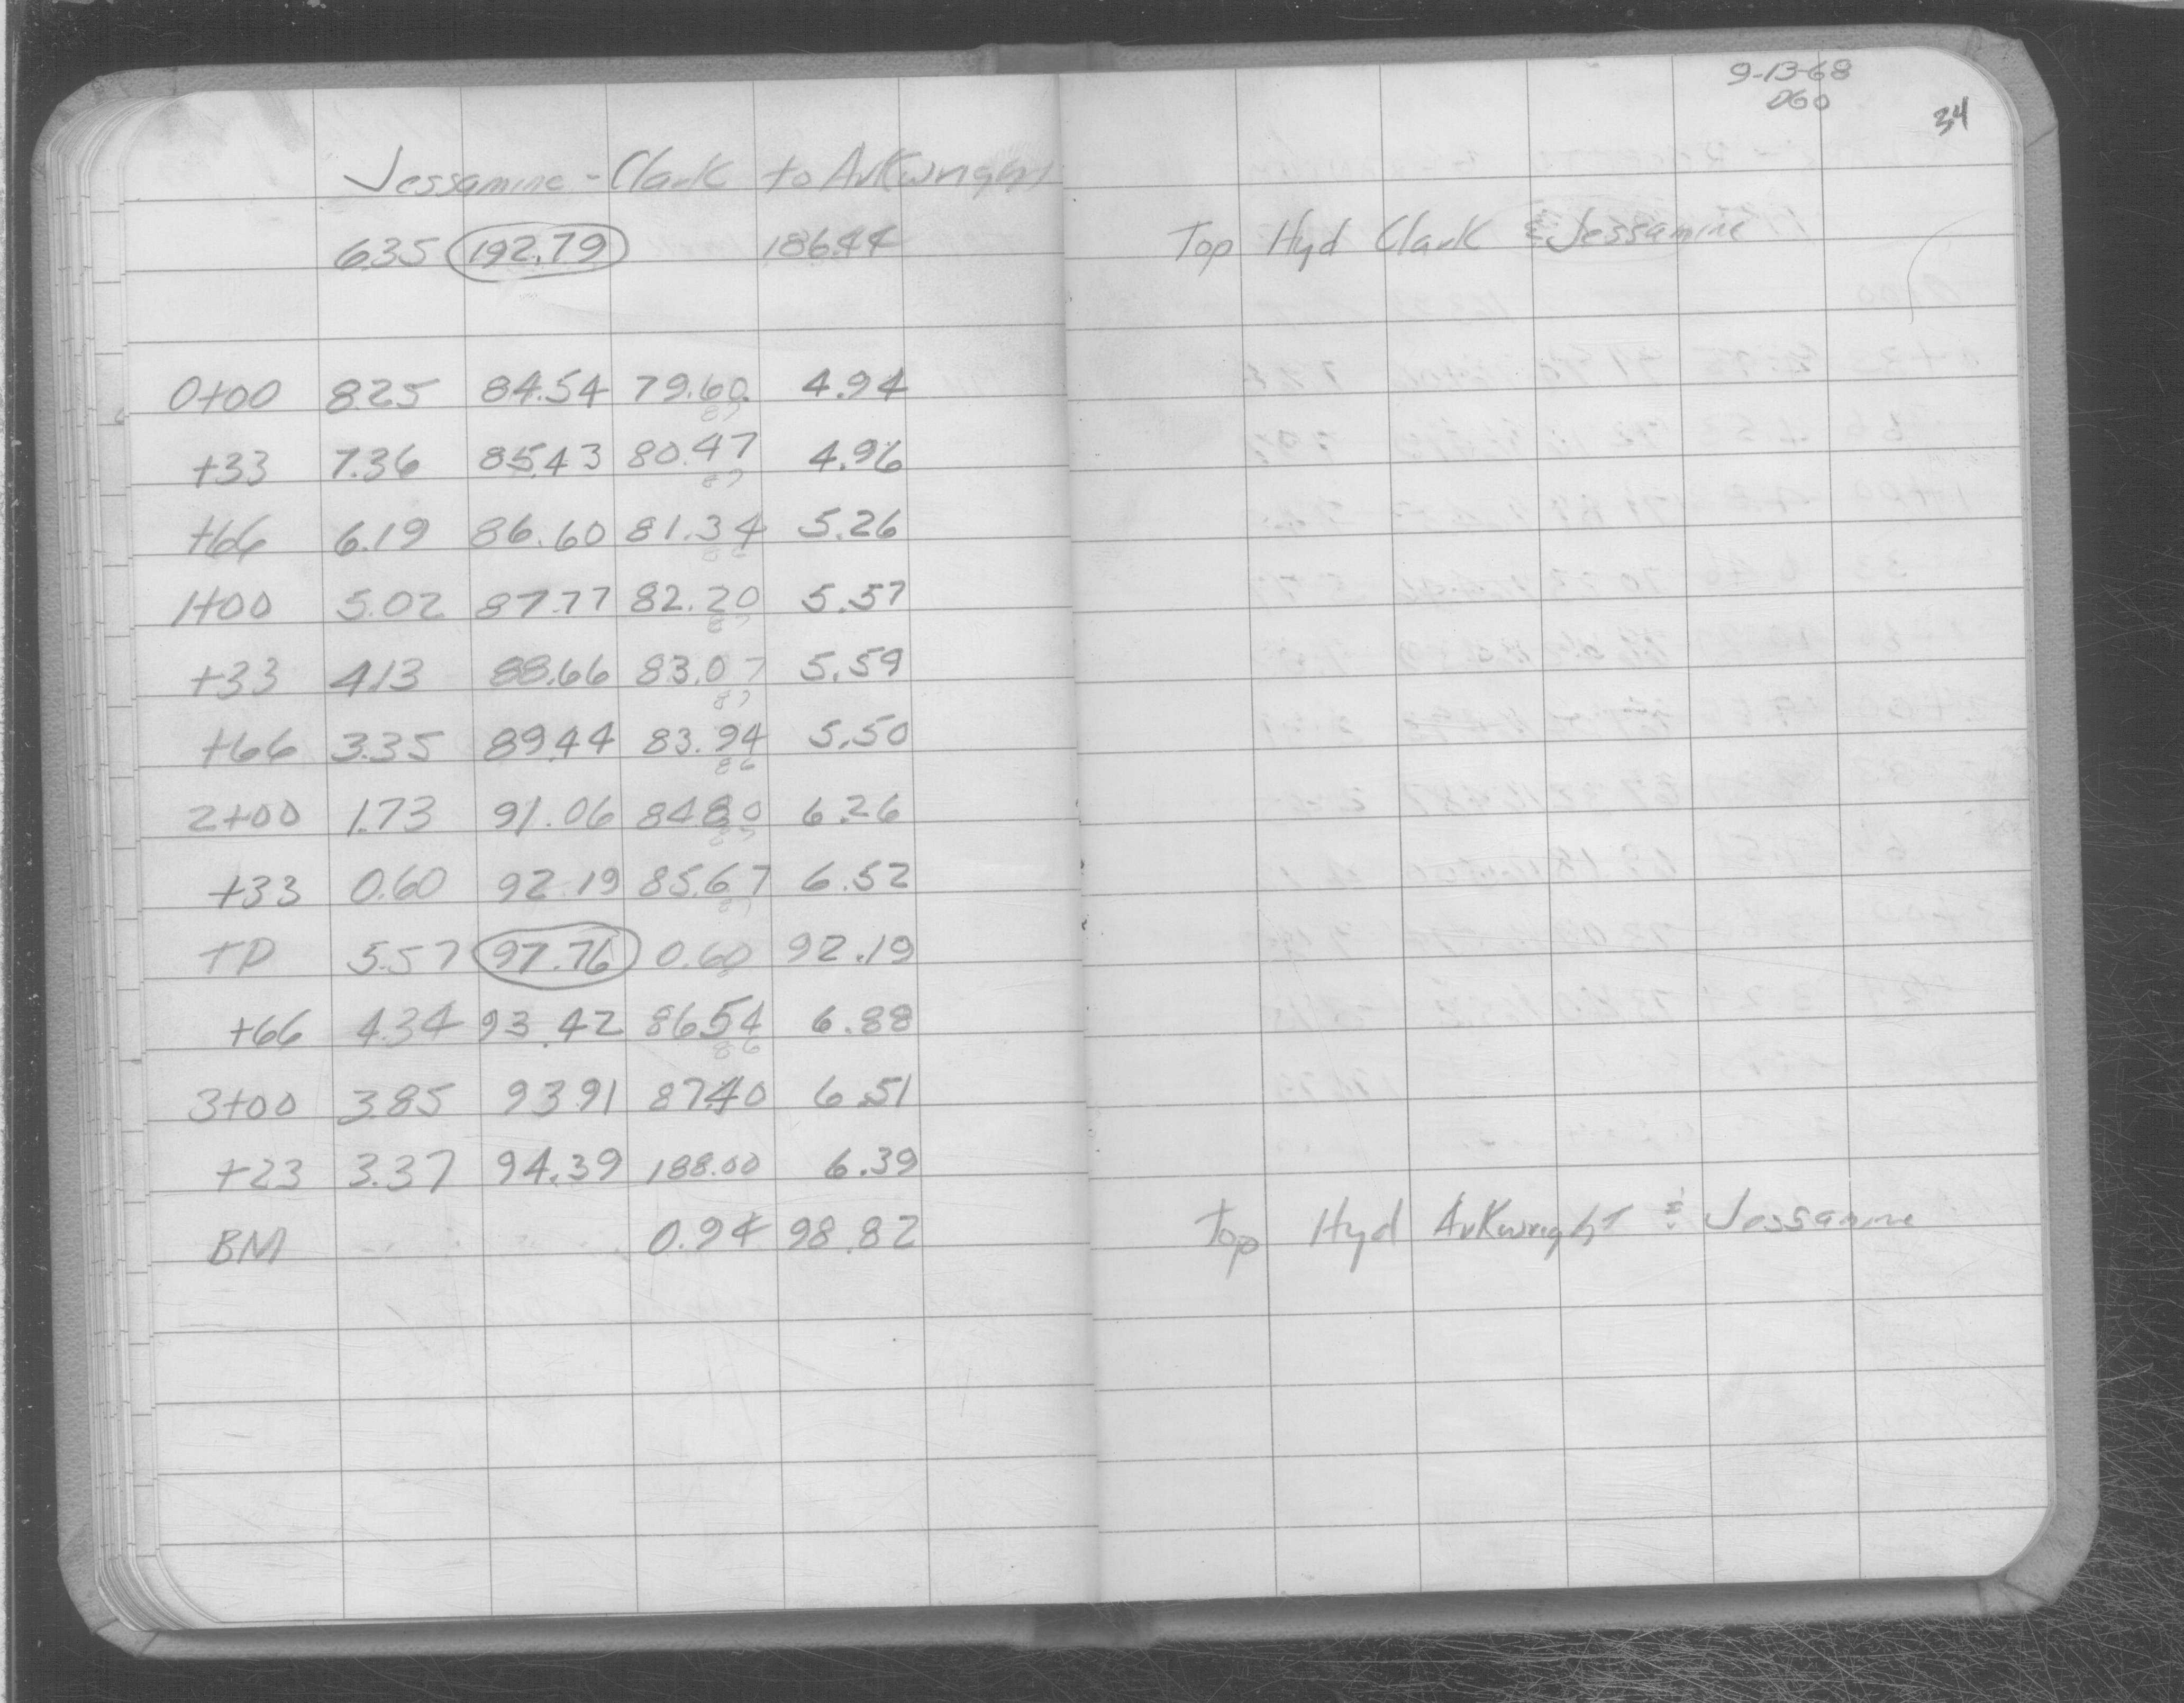 9-13-68
060
34
Jessamine - Clark to Arkwright
6.35 192.79 186.44 Top Hyd Clark & Jessamine
0+00 8.25 84.54 79.60 4.94
87
+33 7.36 85.43 80.47 4.96
87
+66 6.19 86.60 81.34 5.26
86
1+00 5.02 87.77 82.20 5.57
87
+33 4.13 88.66 83.07 5.59
87
+66 3.35 89.44 83.94 5.50
86
2+00 1.73 91.06 84.80 6.26
87
+33 0.60 92.19 85.67 6.52
87
TP 5.57 97.76 0.60 92.19
+66 4.34 93.42 86.54 6.88
86
3+00 3.85 93.91 87.40 6.51
+23 3.37 94.39 188.00 6.39
BM 0.94 98.82 Top Hyd Arkwright & Jessamine